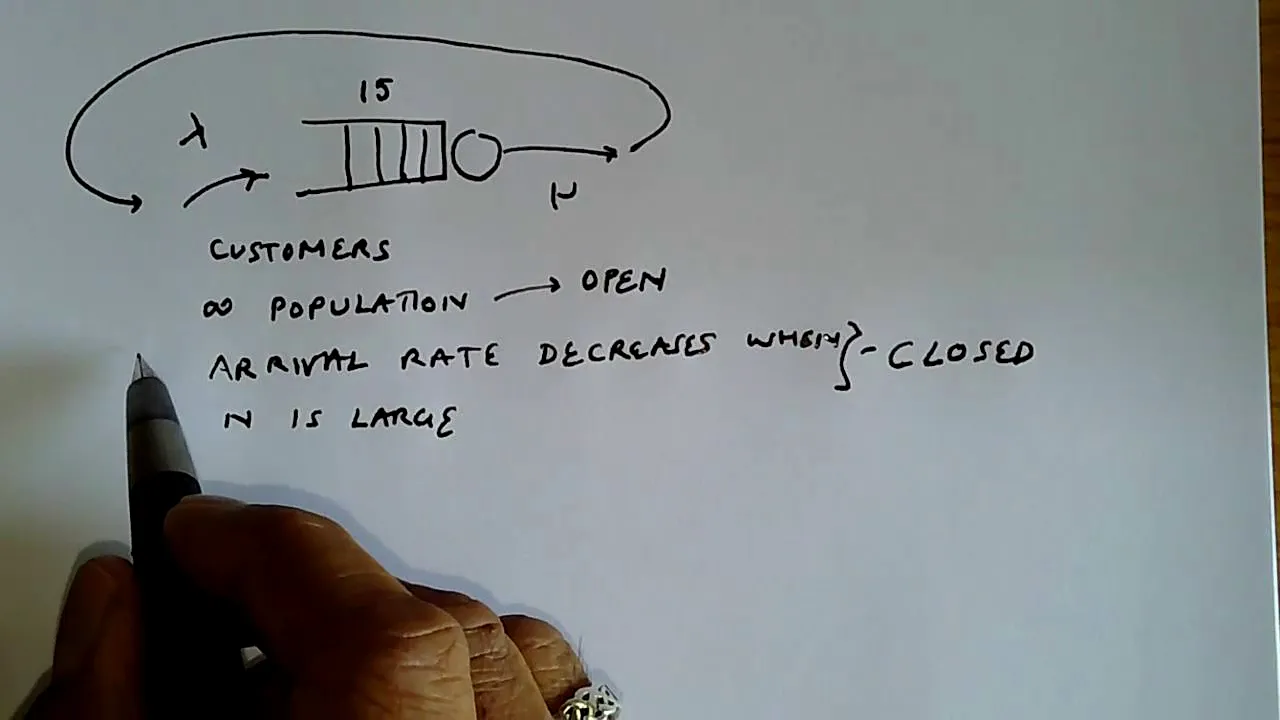 15
λ
μ
CUSTOMERS
∞ POPULATION → OPEN
ARRIVAL RATE DECREASES WHEN } - CLOSED
N IS LARGE